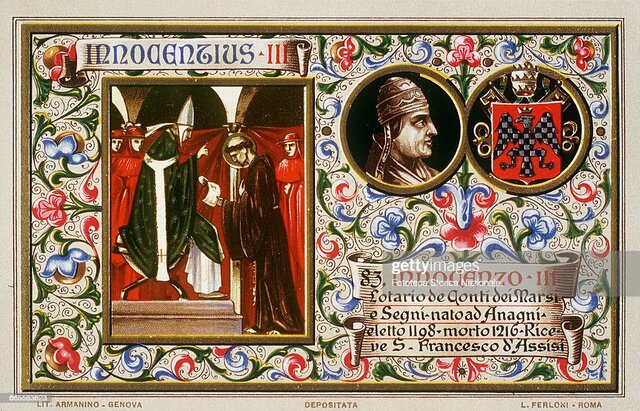 INNOCENTIUS · III
83. INNOCENZO · III
Lotario de Conti dei Marsi
e Segni · nato ad Anagni ·
eletto 1198 · morto 1216 · Rice-
ve S · Francesco d'Assisi
gettyimages
Fototeca Storica Nazionale.
LIT. ARMANINO - GENOVA
DEPOSITATA
L. FERLONI - ROMA